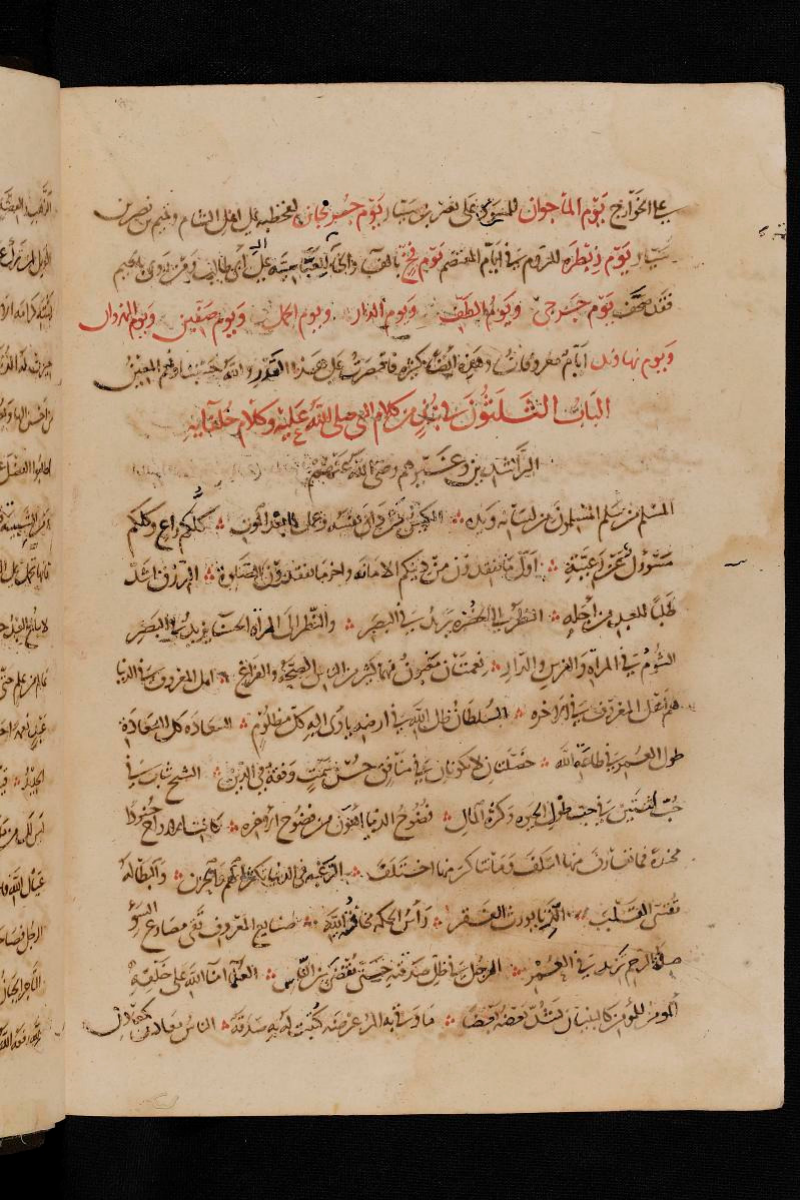 على الخوارج يوم الماجوان للمسود على نصر بن سيار يوم جسر لقحطبة على اهل الشام وتميم بن نصر بن
سيار يوم زبطره للروم في ايام المعتصم يوم فخ على آل أبي طالب
يوم ويوم الطف ويوم الدار ويوم الجمل ويوم صفين ويوم النهروان
ويوم نهاوند ايام معروفات وهي ايضا كثيره فاقتصرت على هذا القدر والله حسبنا ونعم المعين
الباب الثلثون في نبذ من كلام النبي صلى الله عليه وكلام خلفايه
الراشدين وغيرهم رضي الله عنهم
المسلم من سلم المسلمون من لسانه ويده ∴ الكيس من دان نفسه وعمل لما بعد الموت ∴ كلكم راع وكلكم
مسؤول عن رعيته ∴ اول ما تفقدون من دينكم الامانه واخر ما تفقدون الصلوة ∴ الرزق اشد
طلبا للعبد من أجله ∴ النظر في الخضره يزيد في البصر ∴ والنظر الى المراة الحسنا يزيد في البصر
الشوم في المراة والفرس والدار ∴ نعمتان مغبون فيهما كثير من الناس الصحة والفراغ ∴ اهل المعروف في الدنيا
هم اهل المعروف في الاخره ∴ السلطان ظل الله في ارضه ياوى اليه كل مظلوم ∴ السعاده كل السعادة
طول العمر في طاعة الله ∴ خصلتان لا تكونان في منافق حسن سمت وفقه في الدين ∴ الشيخ شاب في
حب اثنتين في حب طول الحيوه وكثرة المال ∴ فضوح الدنيا اهون من فضوح الاخره ∴ كانت الارواح جنودا
مجندة فما تعارف منها ائتلف وما تناكر منها اختلف ∴ الرغبه في الدنيا تكثر الهم والحزن ∴ والبطاله
تقسي القلب ∴ الزنا يورث الفقر ∴ رأس الحكمه مخافة الله ∴ صنايع المعروف تقي مصارع السوء
صلة الرحم تزيد في العمر ∴ الرجل في ظل صدقته حتى يقضى بين الناس ∴ العلما امنا الله على خلقه
المومن للمؤمن كالبنيان يشد بعضه بعضا ∴ ما وقى به المرء عرضه كتبت له به صدقة ∴ الناس معادن كمعادن